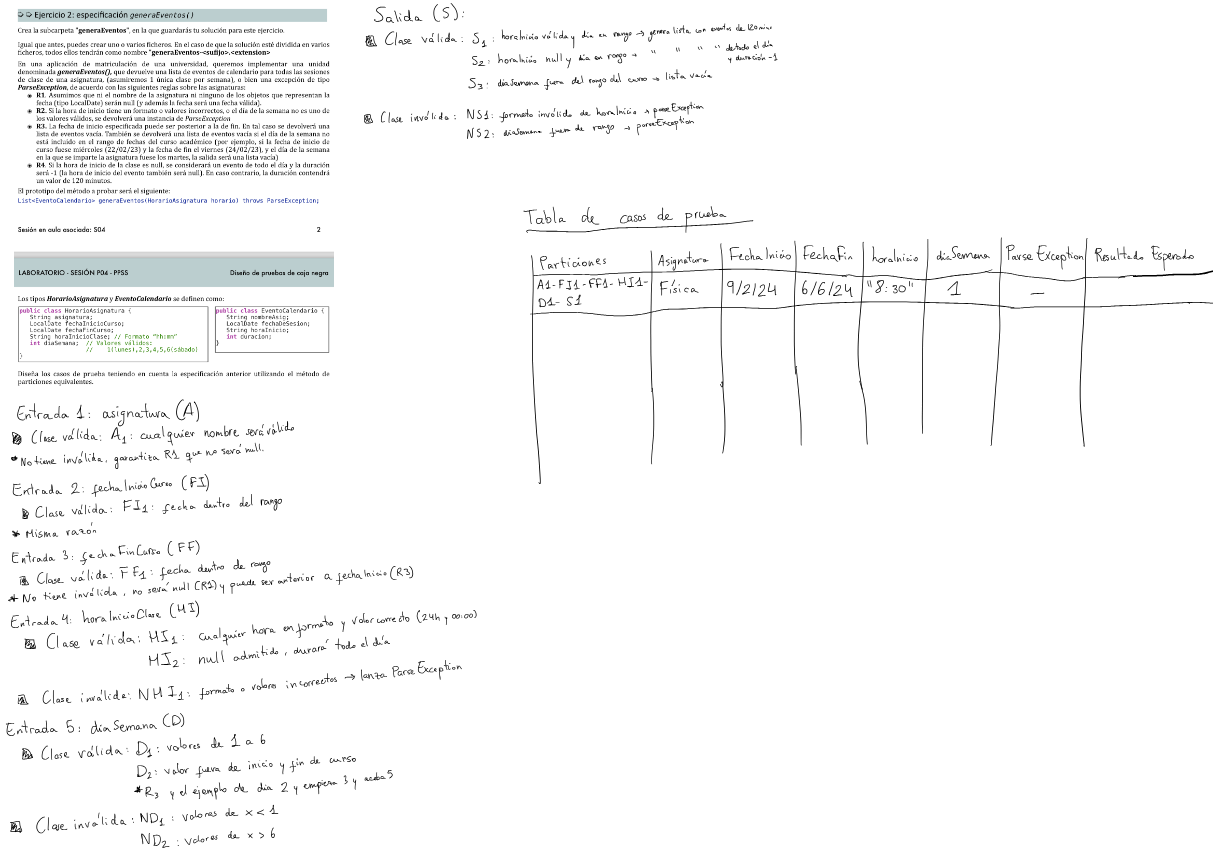 Ejercicio 2: especificación generaEventos()
Crea la subcarpeta "generaEventos", en la que guardarás tu solución para este ejercicio.
Igual que antes, puedes crear uno o varios ficheros. En el caso de que la solución esté dividida en varios
ficheros, todos ellos tendrán como nombre "generaEventos-<sufijo>.<extension>
En una aplicación de matriculación de una universidad, queremos implementar una unidad
denominada generaEventos(), que devuelve una lista de eventos de calendario para todas las sesiones
de clase de una asignatura, (asumiremos 1 única clase por semana), o bien una excepción de tipo
ParseException, de acuerdo con las siguientes reglas sobre las asignaturas:
R1. Asumimos que ni el nombre de la asignatura ni ninguno de los objetos que representan la
fecha (tipo LocalDate) serán null (y además la fecha será una fecha válida).
R2. Si la hora de inicio tiene un formato o valores incorrectos, o el día de la semana no es uno de
los valores válidos, se devolverá una instancia de ParseException
R3. La fecha de inicio especificada puede ser posterior a la de fin. En tal caso se devolverá una
lista de eventos vacía. También se devolverá una lista de eventos vacía si: el día de la semana no
está incluido en el rango de fechas del curso académico (por ejemplo, si la fecha de inicio de
curso fuese miércoles (22/02/23) y la fecha de fin el viernes (24/02/23), y el día de la semana
en la que se imparte la asignatura fuese los martes, la salida será una lista vacía)
R4. Si la hora de inicio de la clase es null, se considerará un evento de todo el día y la duración
será -1 (la hora de inicio del evento también será null). En caso contrario, la duración contendrá
un valor de 120 minutos.
El prototipo del método a probar será el siguiente:
List<EventoCalendario> generaEventos(HorarioAsignatura horario) throws ParseException;
Sesión en aula asociada: S04 2
LABORATORIO - SESIÓN P04 - PPSS Diseño de pruebas de caja negra
Los tipos HorarioAsignatura y EventoCalendario se definen como:
public class HorarioAsignatura {
String asignatura;
LocalDate fechaInicioCurso;
LocalDate fechaFinCurso;
String horaInicioClase; // Formato "hh:mm"
int diaSemana; // Valores válidos:
// 1(lunes),2,3,4,5,6(sábado)
}
public class EventoCalendario {
String nombreAsig;
LocalDate fechaDeSesion;
String horaInicio;
int duracion;
}
Diseña los casos de prueba teniendo en cuenta la especificación anterior utilizando el método de
particiones equivalentes.
Entrada 1: asignatura (A)
Clase válida: A1: cualquier nombre será válido
* No tiene inválida, garantiza R1 que no será null.
Entrada 2: fechaInicioCurso (FI)
Clase válida: FI1: fecha dentro del rango
* Misma razón
Entrada 3: fechaFinCurso (FF)
Clase válida: FF1: fecha dentro de rango
* No tiene inválida, no será null (R1) y puede ser anterior a fechaInicio (R3)
Entrada 4: horaInicioClase (HI)
Clase válida: HI1: cualquier hora en formato y valor correcto (24h y 00:00)
HI2: null admitido, durará todo el día
Clase inválida: NHI1: formato o valores incorrectos → lanza ParseException
Entrada 5: diaSemana (D)
Clase válida: D1: valores de 1 a 6
D2: valor fuera de inicio y fin de curso
* R3 y el ejemplo de dia 2 y empieza 3 y acaba 5
Clase inválida: ND1: valores de x < 1
ND2: valores de x > 6
Salida (S):
Clase válida: S1: horaInicio válida y dia en rango → genera lista con eventos de 120 mins
S2: horaInicio null y dia en rango → " " " " de todo el día
y duración -1
S3: diaSemana fuera del rango del curso → lista vacía
Clase inválida: NS1: formato inválido de horaInicio → parseException
NS2: diaSemana fuera de rango → parseException
Tabla de casos de prueba
Particiones Asignatura FechaInicio FechaFin horaInicio diaSemana ParseException Resultado Esperado
A1-FI1-FF1-HI1- Física 9/2/24 6/6/24 "8:30" 1 —
D1-S1